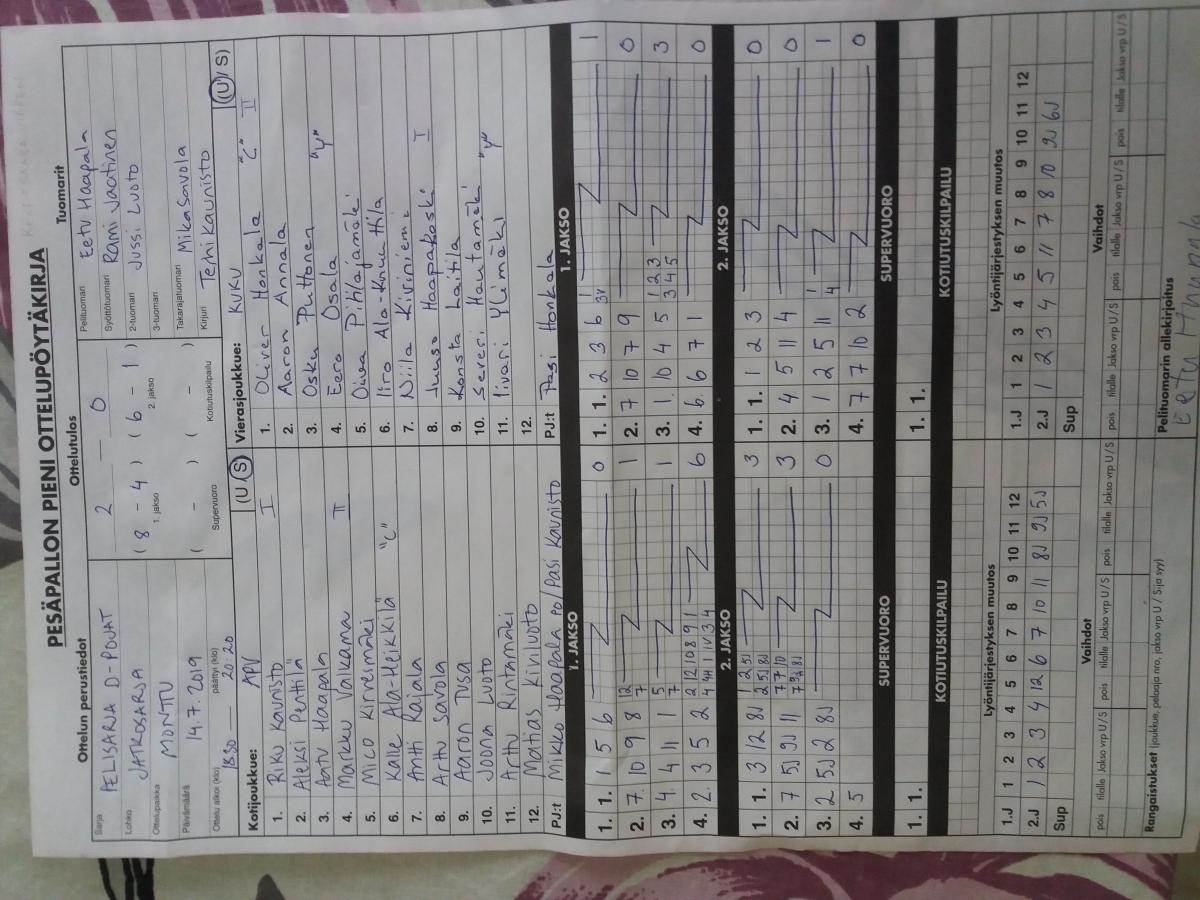 PESÄPALLON PIENI OTTELUPÖYTÄKIRJA
Ottelun perustiedot
Sarja
Lohko JATKOSARJA
Ottelupaikka MONTTU
Päivämäärä 14.7.2019
Ottelu alkoi (klo) 1830 päättyi (klo) 20.20
Ottelutulos
2 — 0
( 8 - 4 ) ( 6 - 1 )
1. jakso 2. jakso
( - ) ( - )
Supervuoro Kotiutuskilpailu
Tuomarit
Pelituomari Eetu Haapala
Syöttötuomari Rami Jaatinen
2-tuomari Jussi Luoto
3-tuomari
Takarajatuomari Mika Savola
Kirjuri Terhi Kaunisto
Kotijoukkue: APV (U/S)
1. Riku Kaunisto I
2. Aleksi Penttilä
3. Aatu Haapala
4. Markku Valkama II
5. Mico Kirveimäki
6. Kalle Ala-Heikkilä "C"
7. Antti Rajala
8. Arttu Savola
9. Aaron Tusa
10. Joona Luoto
11. Arttu Rintamäki
12. Matias Kiviluoto
PJ:t Mikko Haapala PO/Pasi Kaunisto
Vierasjoukkue: KUKU (U/S)
1. Oliver Honkala "C" II
2. Aaron Annala
3. Osku Puttonen "Y"
4. Eero Osala
5. Oiva Pihlajamäki
6. Iiro Ala-Knuuttila
7. Niila Kiviniemi
8. Juuso Haapakoski I
9. Konsta Laitila
10. Severi Hautamäki "Y"
11. Iivari Ylimäki
12.
PJ:t Pasi Honkala
1. JAKSO
1. 1. 1 5 6 0
2. 7. 10 9 8 12 7 1
3. 4. 4 11 1 5 7 1
4. 2. 3 5 2 6
1. JAKSO
1. 1. 2 3 6 1 3V 1
2. 7 10 7 9 0
3. 1. 10 4 5 1 2 3 3 4 5 3
4. 6. 6 7 1 0
2. JAKSO
1. 1. 3 12 8J 3
2. 7 5J 9J 11 3
3. 2 5J 2 8J 0
4. 5
2. JAKSO
1. 1. 1 2 3 0
2. 4 5 11 4 0
3. 1 2 5 11 1 4 1
4. 7 7 10 2 0
SUPERVUORO
1. 1.
SUPERVUORO
1. 1.
KOTIUTUSKILPAILU
KOTIUTUSKILPAILU
Lyöntijärjestyksen muutos
1.J 1 2 3 4 5 6 7 8 9 10 11 12
2.J 1 2 3 4 12 6 7 10 11 8J 9J 5J
Sup
Lyöntijärjestyksen muutos
1.J 1 2 3 4 5 6 7 8 9 10 11 12
2.J 1 2 3 4 5 11 7 8 10 9J 6J
Sup
Vaihdot
pois tilalle Jakso vrp U/S pois tilalle Jakso vrp U/S pois tilalle Jakso vrp U/S
Vaihdot
pois tilalle Jakso vrp U/S pois tilalle Jakso vrp U/S pois tilalle Jakso vrp U/S
Rangaistukset (joukkue, pelaaja nro, jakso vrp U / S ja syy)
Pelituomarin allekirjoitus